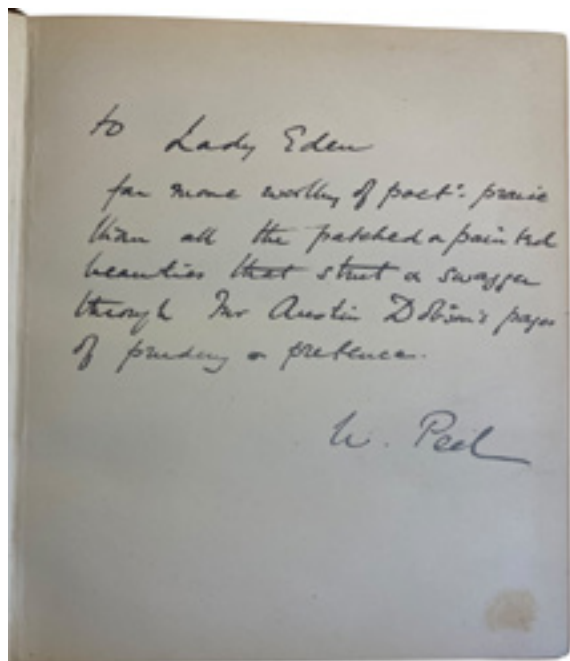 to Lady Eden
far more worthy of poets' praise
than all the patched & painted
beauties that strut & swagger
through Mr Austin Dobson's pages
of prudery & pretence.
W. Peel